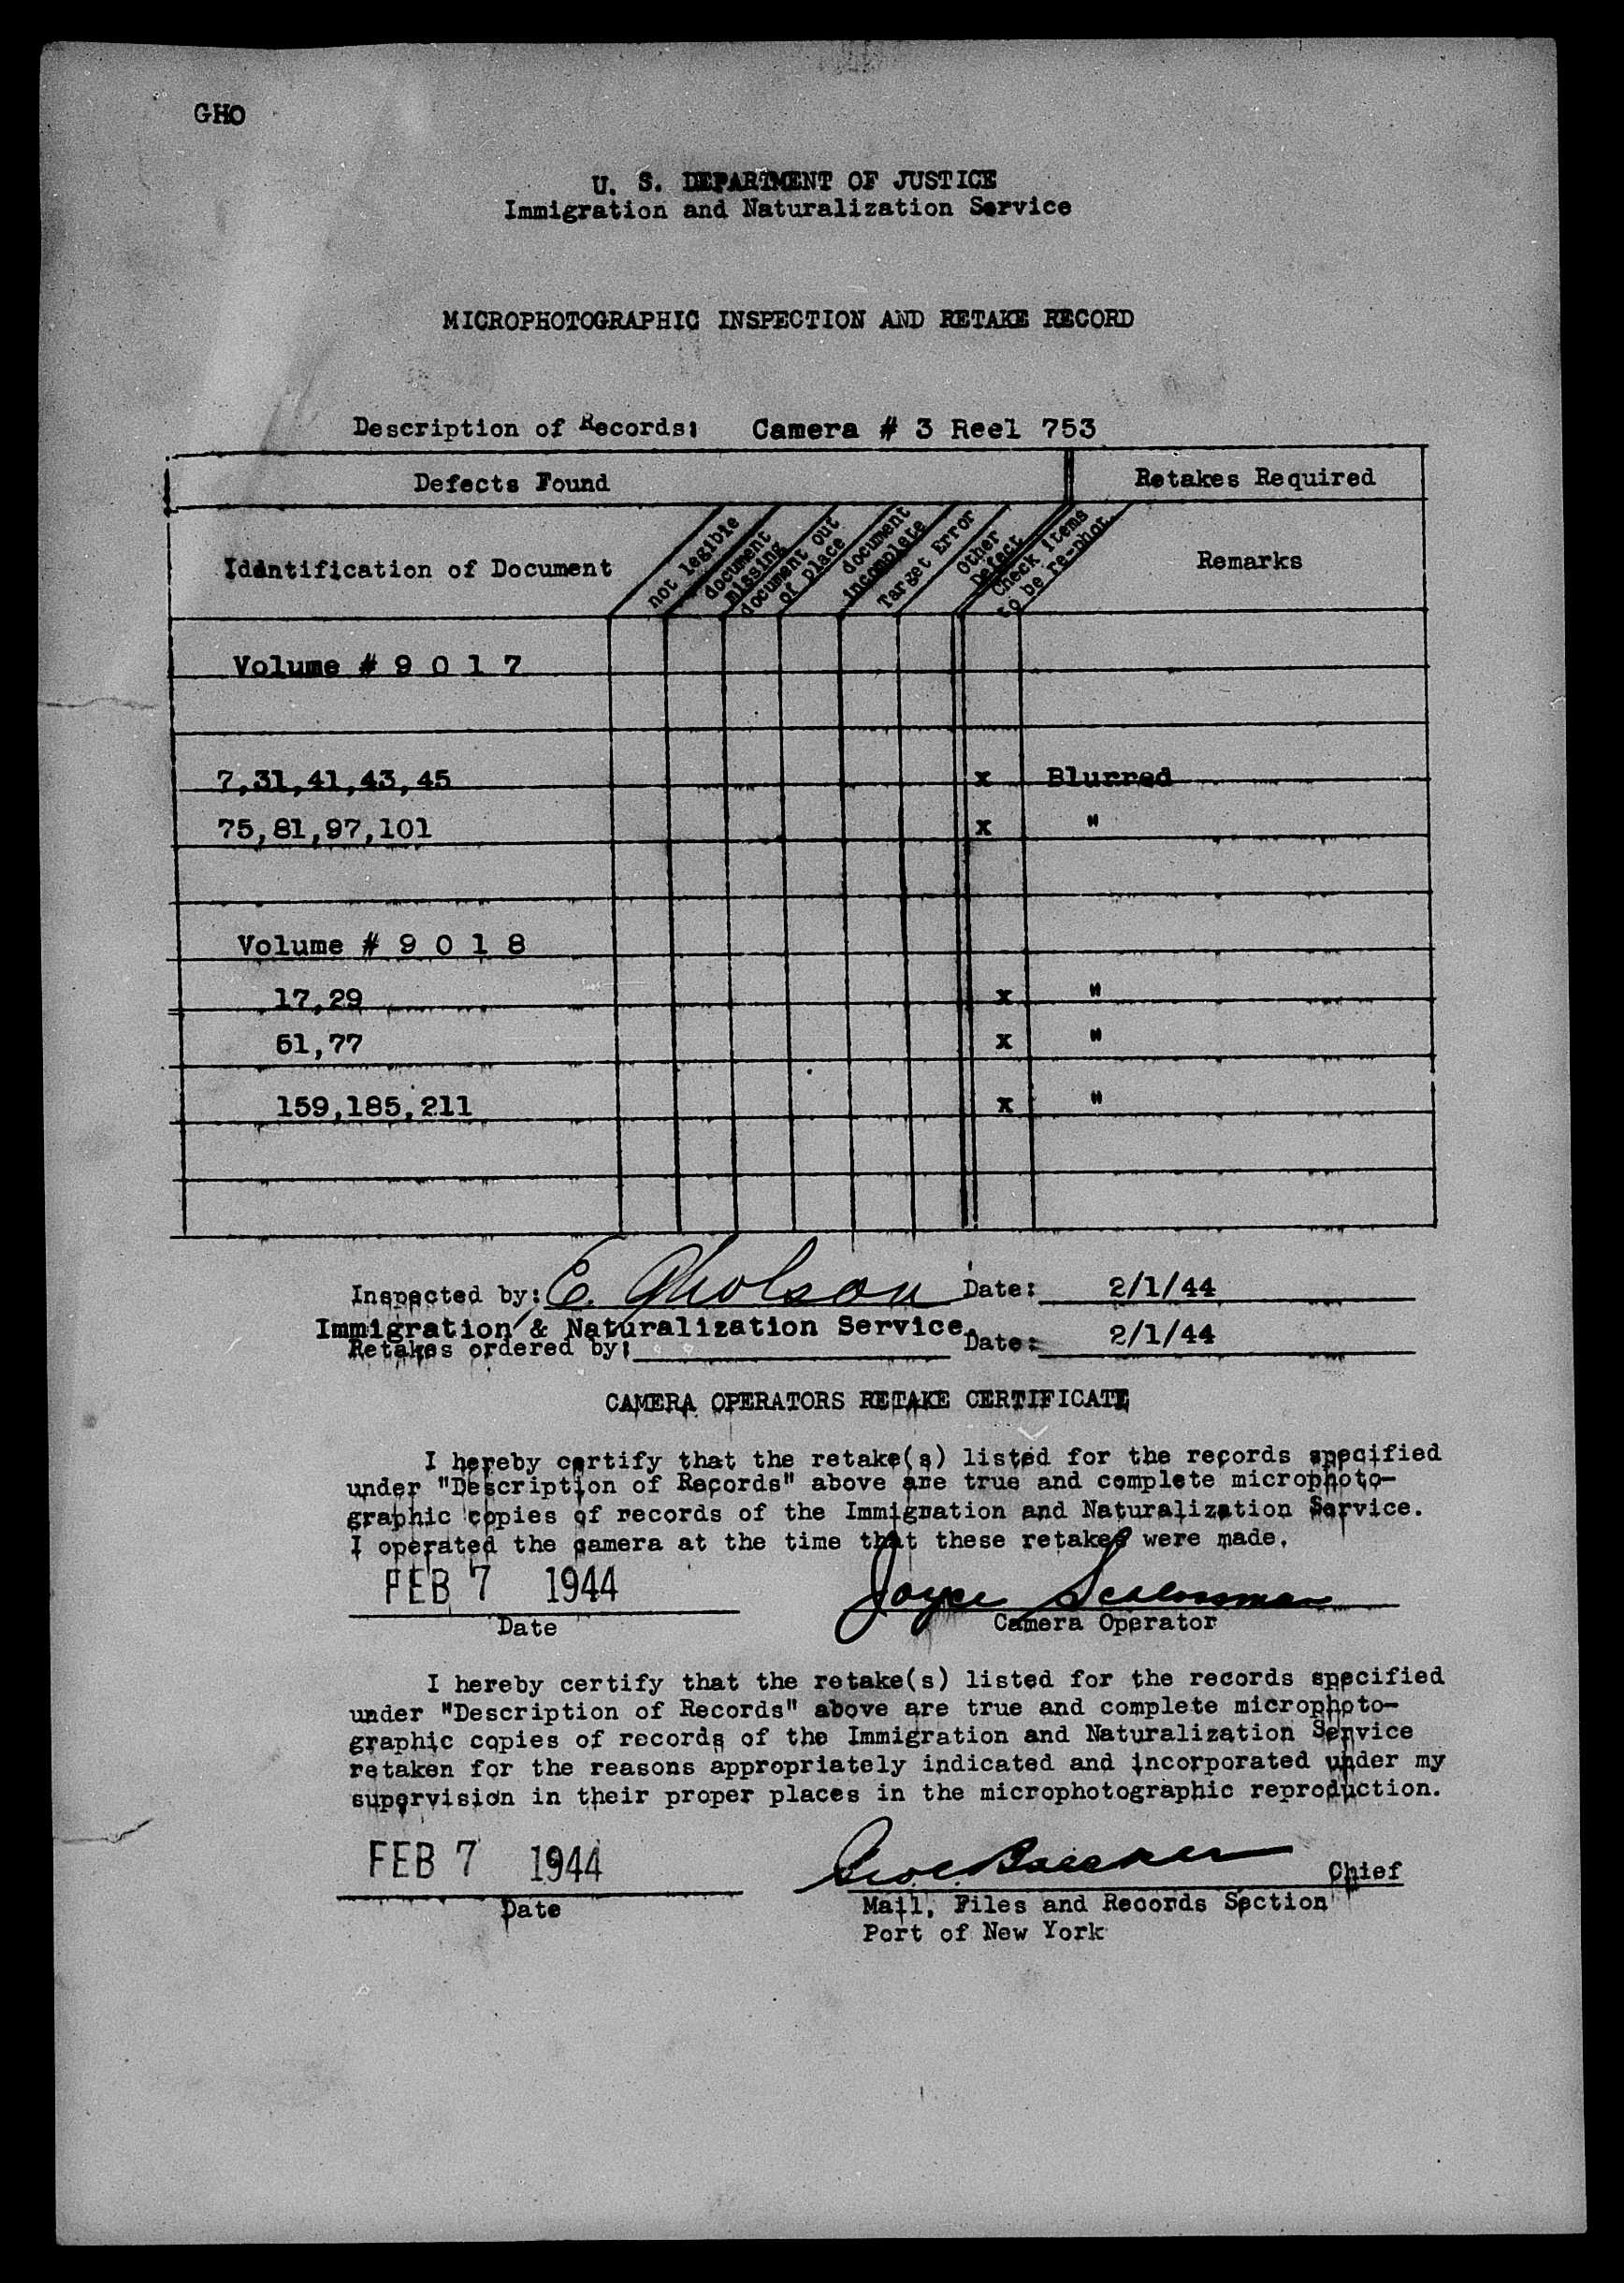 GHO
U. S. DEPARTMENT OF JUSTICE
Immigration and Naturalization Service
MICROPHOTOGRAPHIC INSPECTION AND RETAKE RECORD
Description of Records: Camera # 3 Reel 753
Defects Found Retakes Required
Identification of Document not legible document missing document out of place document incomplete Target Error Other Defect Check items to be re-phot. Remarks
Volume # 9 0 1 7
7,31,41,43,45 x Blurred
75,81,97,101 x "
Volume # 9 0 1 8
17,29 x "
51,77 x "
159,185,211 x "
Inspected by: E. Gholson Date: 2/1/44
Immigration & Naturalization Service.
Retakes ordered by: Date: 2/1/44
CAMERA OPERATORS RETAKE CERTIFICATE
I hereby certify that the retake(s) listed for the records specified
under "Description of Records" above are true and complete microphoto-
graphic copies of records of the Immigration and Naturalization Service.
I operated the camera at the time that these retakes were made.
FEB 7 1944 Joyce Schlossman
Date Camera Operator
I hereby certify that the retake(s) listed for the records specified
under "Description of Records" above are true and complete microphoto-
graphic copies of records of the Immigration and Naturalization Service
retaken for the reasons appropriately indicated and incorporated under my
supervision in their proper places in the microphotographic reproduction.
FEB 7 1944 Chief
Date Mail, Files and Records Section
Port of New York